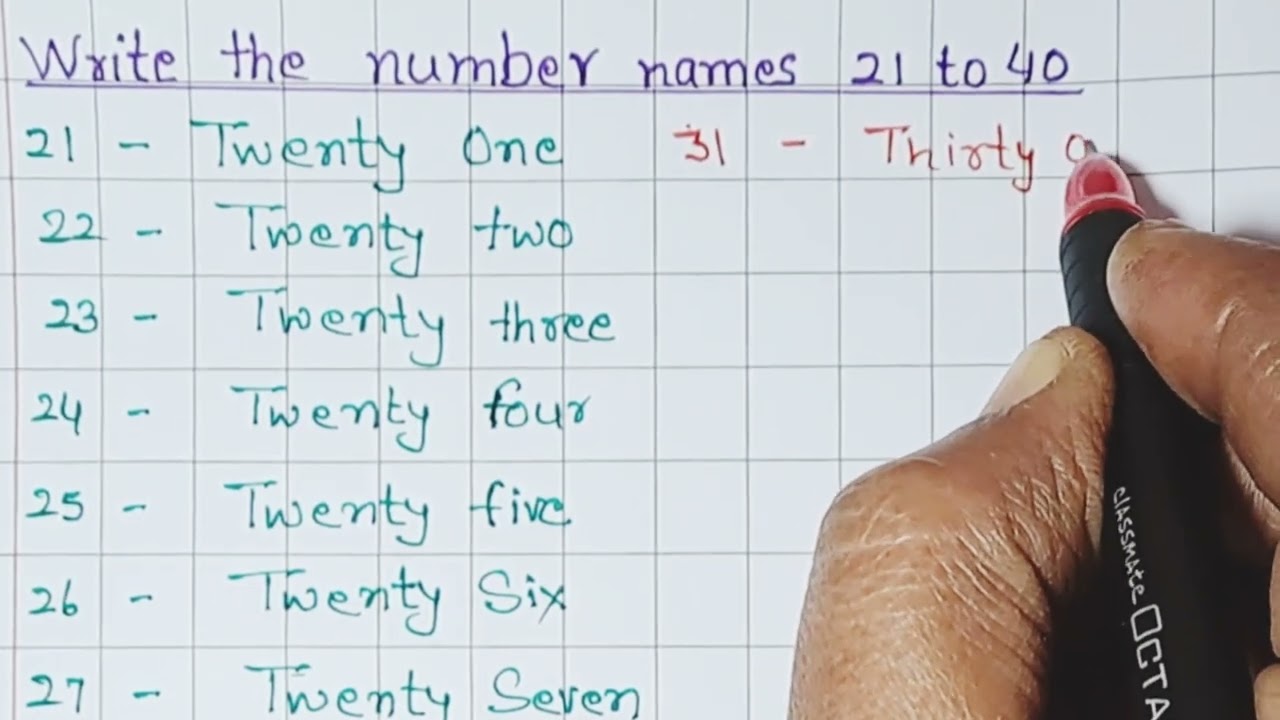 Write the number names 21 to 40
21 - Twenty One
22 - Twenty two
23 - Twenty three
24 - Twenty four
25 - Twenty five
26 - Twenty Six
27 - Twenty Seven
31 - Thirty o
classmate OCTA